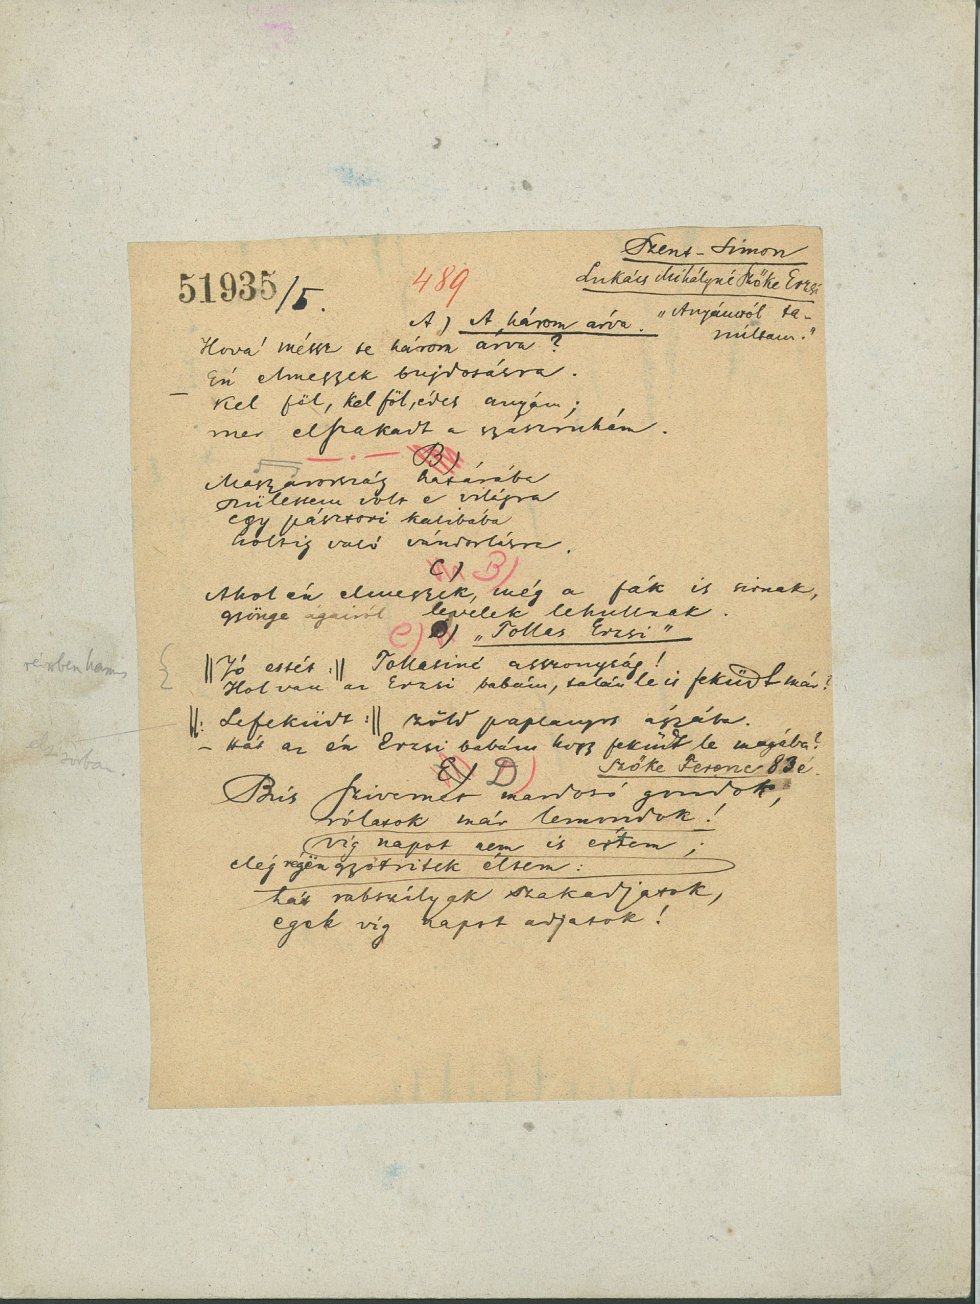 Szent-Simon
51935/5.
489
Lukács Mihályné Szőke Erzsi
"Anyámtól ta-
nultam."
A) A három árva.
Hová mégysz te három árva?
Én elmegyek bujdosásra.
– Kel föl, kel föl, édes anyám;
mer elszakadt a gyászruhám.
B)
Magyarország határába
születtem volt e világra
egy pásztori kalibába
holtig való vándorlásra.
C) B)
Ahol én elmegyek, még a fák is sirnak,
gyönge ágairól levelek lehullnak.
C) D) "Tollas Erzsi"
||Jó estét :|| Tollasiné asszonyság!
részben hamis
Hol van az Erzsi babám, talán le is feküdt már?
||: Lefeküdt :|| zöld paplanyos ágyába.
– Hát az én Erzsi babám hogy feküdt le magába?
első sorban.
Szőke Ferenc 83 é.
E) D)
Bús szivemet mardosó gondok,
rólatok már lemondok!
víg napot nem is értem;
elej regën gyötritek éltem:
hát rabszíjyak szakadjatok,
egek víg napot adjatok!